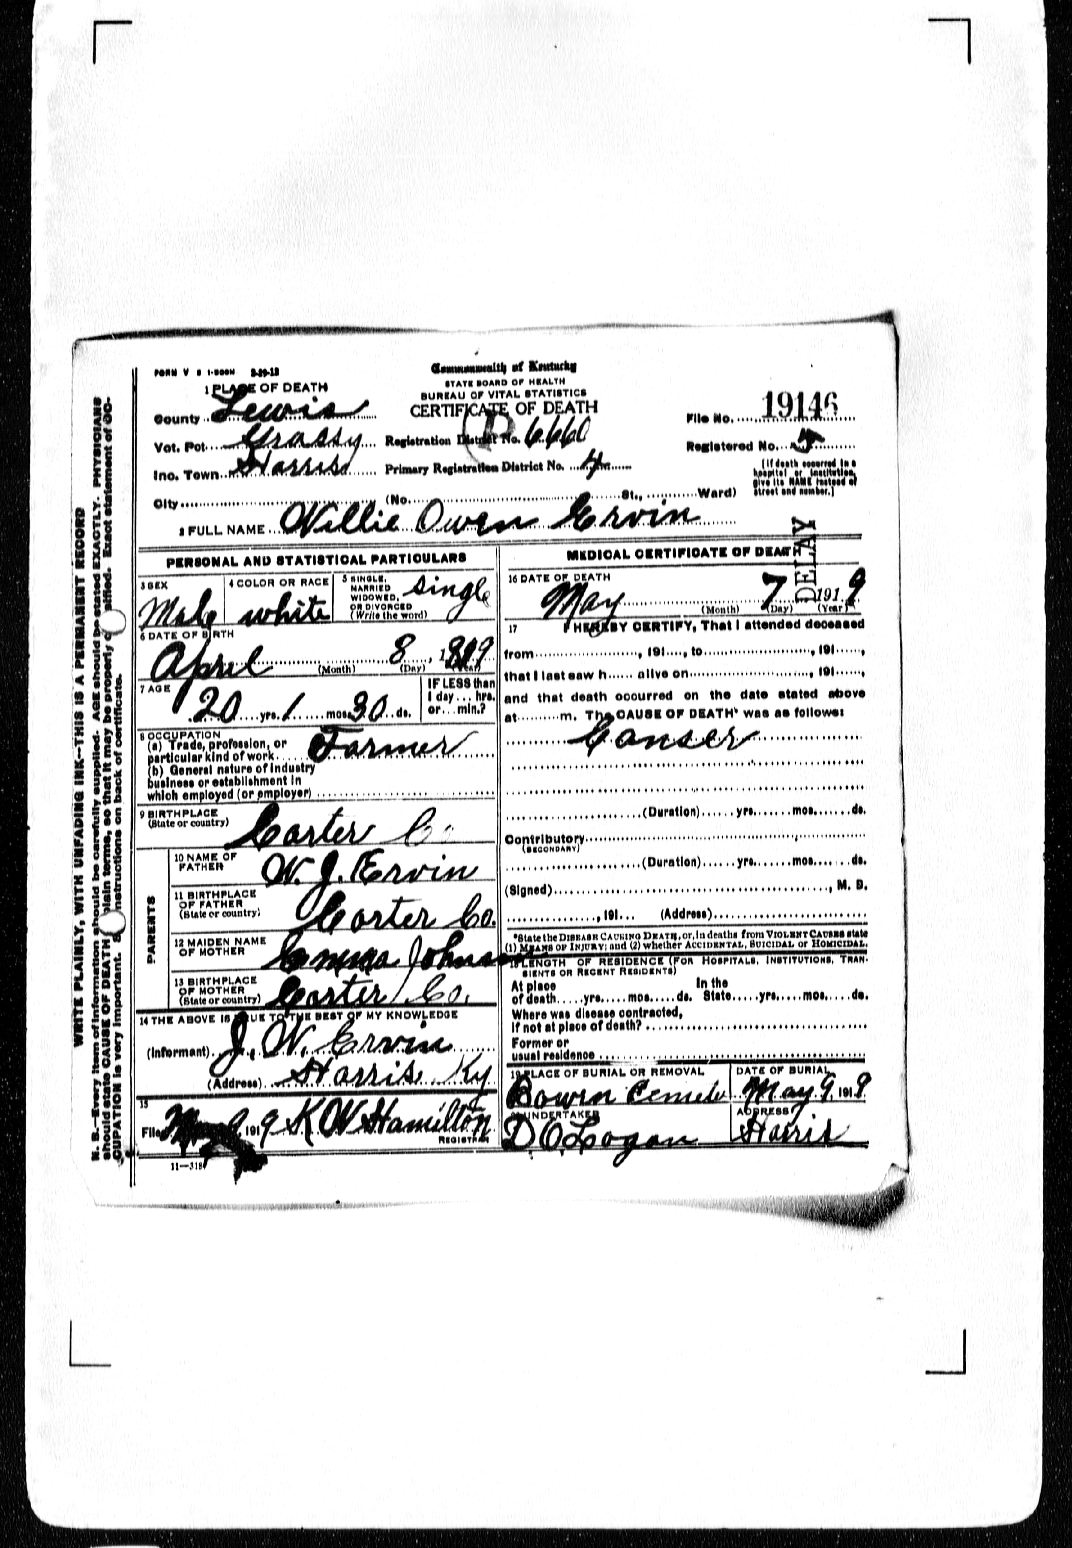 FORM V S 1-500M 3-29-13
Commonwealth of Kentucky
STATE BOARD OF HEALTH
BUREAU OF VITAL STATISTICS
CERTIFICATE OF DEATH
1 PLACE OF DEATH
County Lewis
Vot. Pct. Grassy Registration District No. 6660
Inc. Town Harris Primary Registration District No. 4
File No. 19146
Registered No. 4
City (No. St., Ward)
[If death occurred in a
hospital or institution,
give its NAME instead of
street and number.]
2 FULL NAME Willie Owen Ervin
PERSONAL AND STATISTICAL PARTICULARS
3 SEX
Male
4 COLOR OR RACE
white
5 SINGLE,
MARRIED
WIDOWED,
OR DIVORCED
(Write the word)
single
6 DATE OF BIRTH
April 8, 1899
(Month) (Day) (Year)
7 AGE
20 yrs. 1 mos. 30 ds.
IF LESS than
1 day... hrs.
or... min.?
8 OCCUPATION
(a) Trade, profession, or
particular kind of work Farmer
(b) General nature of industry
business or establishment in
which employed (or employer)
9 BIRTHPLACE
(State or country) Carter Co
PARENTS
10 NAME OF
FATHER W. J. Ervin
11 BIRTHPLACE
OF FATHER
(State or country) Carter Co.
12 MAIDEN NAME
OF MOTHER Emma Johnson
13 BIRTHPLACE
OF MOTHER
(State or country) Carter Co.
14 THE ABOVE IS TRUE TO THE BEST OF MY KNOWLEDGE
(Informant) J. W. Ervin
(Address) Harris Ky
15
Filed May 9 1919 K W Hamilton
REGISTRAR
11—318
MEDICAL CERTIFICATE OF DEATH
DELAY
16 DATE OF DEATH
May 7 1919
(Month) (Day) (Year)
17 I HEREBY CERTIFY, That I attended deceased
from , 191 , to , 191 ,
that I last saw h alive on , 191 ,
and that death occurred on the date stated above
at m. The CAUSE OF DEATH* was as follows:
Canser
(Duration) yrs. mos. ds.
Contributory
(SECONDARY)
(Duration) yrs. mos. ds.
(Signed) , M. D.
, 191 (Address)
*State the DISEASE CAUSING DEATH, or, in deaths from VIOLENT CAUSES state
(1) MEANS OF INJURY; and (2) whether ACCIDENTAL, SUICIDAL or HOMICIDAL.
18 LENGTH OF RESIDENCE (FOR HOSPITALS, INSTITUTIONS, TRAN-
SIENTS OR RECENT RESIDENTS)
At place In the
of death yrs. mos. ds. State yrs. mos. ds.
Where was disease contracted,
If not at place of death?
Former or
usual residence
19 PLACE OF BURIAL OR REMOVAL
Bowen Cemete
DATE OF BURIAL
May 9, 1919
20 UNDERTAKER
D. O. Logan
ADDRESS
Harris
WRITE PLAINLY, WITH UNFADING INK—THIS IS A PERMANENT RECORD
N. B.—Every item of information should be carefully supplied. AGE should be stated EXACTLY. PHYSICIANS
should state CAUSE OF DEATH in plain terms, so that it may be properly classified. Exact statement of OC-
CUPATION is very important. See instructions on back of certificate.